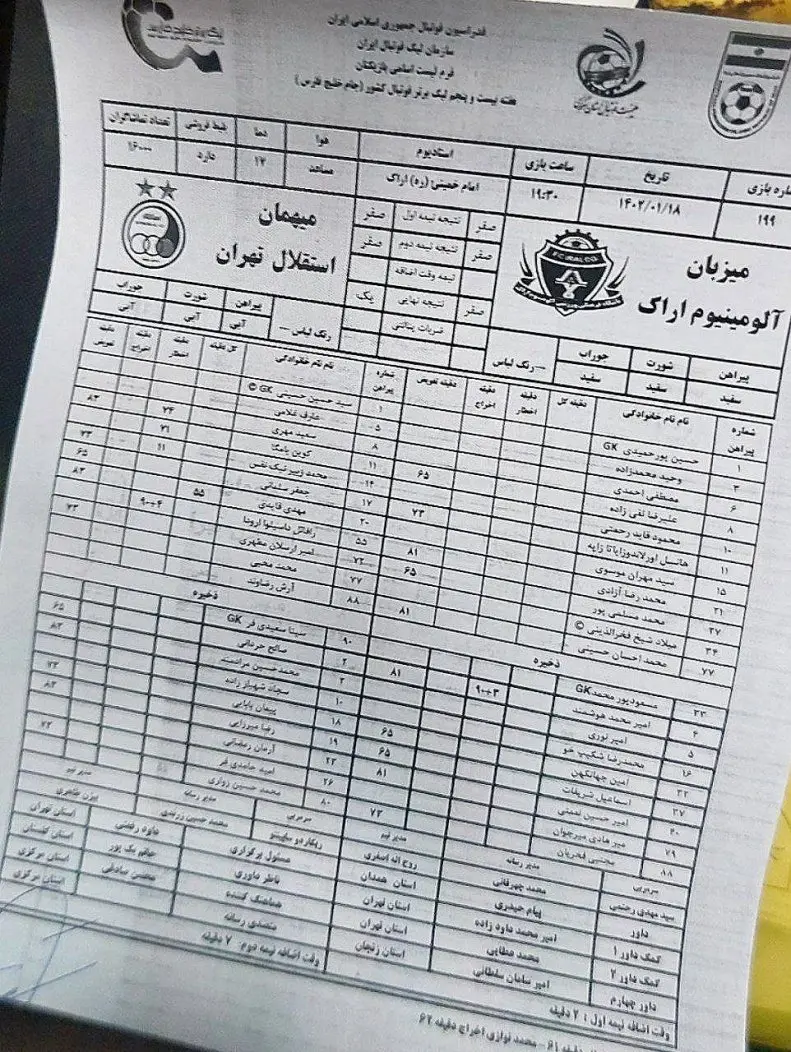 فدراسیون فوتبال جمهوری اسلامی ایران
سازمان لیگ فوتبال ایران
فرم لیست اسامی بازیکنان
هفته بیست و پنجم لیگ برتر فوتبال کشور (جام خلیج فارس)
شماره بازی تاریخ ساعت بازی استادیوم هوا دما بلیط فروشی تعداد تماشاگران
۱۹۹ ۱۴۰۲/۰۱/۱۸ ۱۹:۳۰ امام خمینی (ره) اراک مساعد ۱۷ دارد ۱۶۰۰۰
میزبان
آلومینیوم اراک
صفر نتیجه نیمه اول صفر
صفر نتیجه نیمه دوم صفر
نیمه وقت اضافه
صفر نتیجه نهایی یک
ضربات پنالتی
میهمان
استقلال تهران
پیراهن شورت جوراب رنگ لباس
سفید سفید سفید
رنگ لباس پیراهن شورت جوراب
آبی آبی آبی
شماره پیراهن نام نام خانوادگی دقیقه کل دقیقه اخطار دقیقه اخراج دقیقه تعویض
۱ حسین پورحمیدی GK
۳ وحید محمدزاده
۶ مصطفی احمدی ۶۵
۸ علیرضا نقی زاده
۱۰ محمود قاید رحمتی ۷۳
۱۱ هانسل اورلاندوزاپاتا زاپه
۱۵ سید مهران موسوی ۸۱
۲۱ محمد رضا آزادی ۶۵
۲۷ محمد مسلمی پور
۳۴ میلاد شیخ فخرالدینی ©
۷۷ محمد احسان حسینی ۸۱
ذخیره
۳۳ مسعودپور محمد GK
۴ امیر محمد هوشمند ۹۰+۳ ۸۱
۵ امیر نوری
۱۶ محمدرضا شکیب خو ۶۵
۲۲ امین جهانکهن ۶۵
۲۷ اسماعیل شریفات ۸۱
۴۰ امیر حسین نعمتی
۷۹ میر هادی میرجوان ۷۳
۸۸ مجتبی فخریان
شماره پیراهن نام نام خانوادگی کل دقیقه دقیقه اخطار دقیقه اخراج دقیقه تعویض
۱ سید حسین حسینی GK ©
۵ عارف غلامی ۲۴ ۸۳
۸ سعید مهری ۲۱
۱۱ کوین یامگا ۱۱ ۷۳
۱۴ محمد زبیر نیک نفس ۶۵
۱۷ جعفر سلمانی ۸۳
۲۰ مهدی قایدی ۵۵
۵۵ رافائل داسیلوا ارونا ۹۰+۴
۷۲ امیر ارسلان مطهری ۷۳
۷۷ محمد محبی
۸۸ آرش رضاوند
ذخیره
۹۰ سینا سعیدی فر GK
۲ صالح حردانی ۶۵
۳ محمد حسین مرادمند ۸۳
۱۰ سجاد شهباز زاده
۱۸ پیمان بابایی ۷۳
۱۹ رضا میرزایی ۸۳
۲۲ آرمان رمضانی
۲۶ امید حامدی فر ۷۳
۸۰ محمد حسین زواری
سرپرستی مدیر رسانه مدیر تیم سرمربی مدیر رسانه مدیر تیم
سید مهدی رحمتی محمد چهرقانی روح اله اصغری ریکاردو ساپینتو محمد حسین زرندی بیژن طاهری
داور پیام حیدری استان همدان مسئول برگزاری داود رفتنی استان تهران
کمک داور ۱ امیر محمد داود زاده استان تهران ناظر داوری حاتم بک پور استان گلستان
کمک داور ۲ محمد عطایی استان تهران هماهنگ کننده محسن صادقی استان مرکزی
داور چهارم امیر سامان سلطانی استان زنجان متصدی رسانه استان مرکزی
وقت اضافه نیمه اول : ۲ دقیقه وقت اضافه نیمه دوم: ۷ دقیقه
دقیقه ۶۱ - محمد نوازی اخراج دقیقه ۶۲